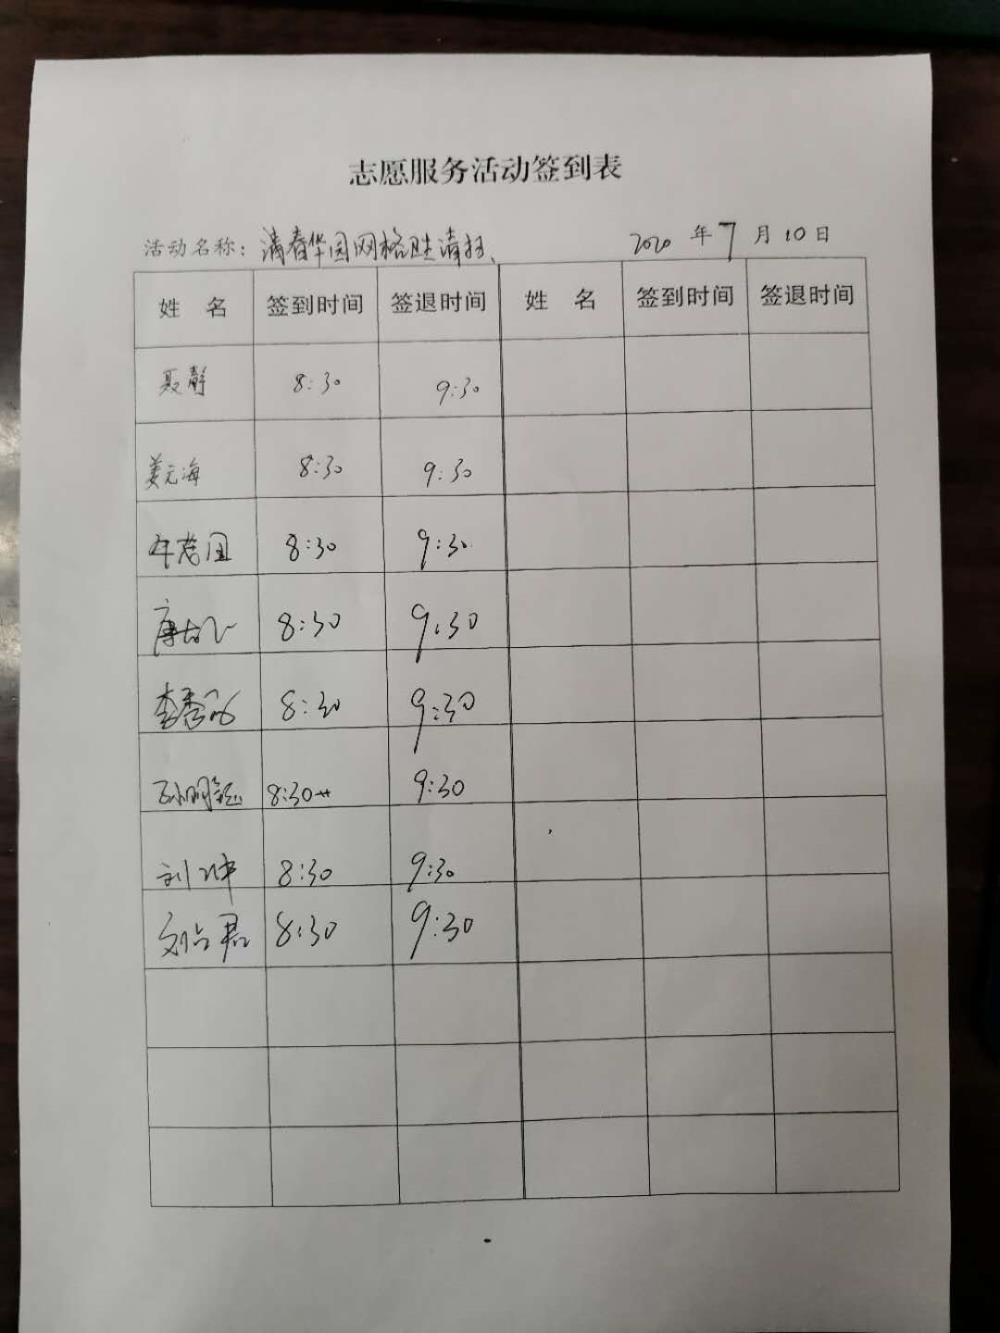 志愿服务活动签到表
活动名称: 满春华园网格 清扫 2020年7月10日
姓名 签到时间 签退时间 姓名 签到时间 签退时间
聂静 8:30 9:30
姜元海 8:30 9:30
牛茂国 8:30 9:30
唐 8:30 9:30
李秀 8:30 9:30
孙明 8:30 9:30
刘坤 8:30 9:30
刘占君 8:30 9:30